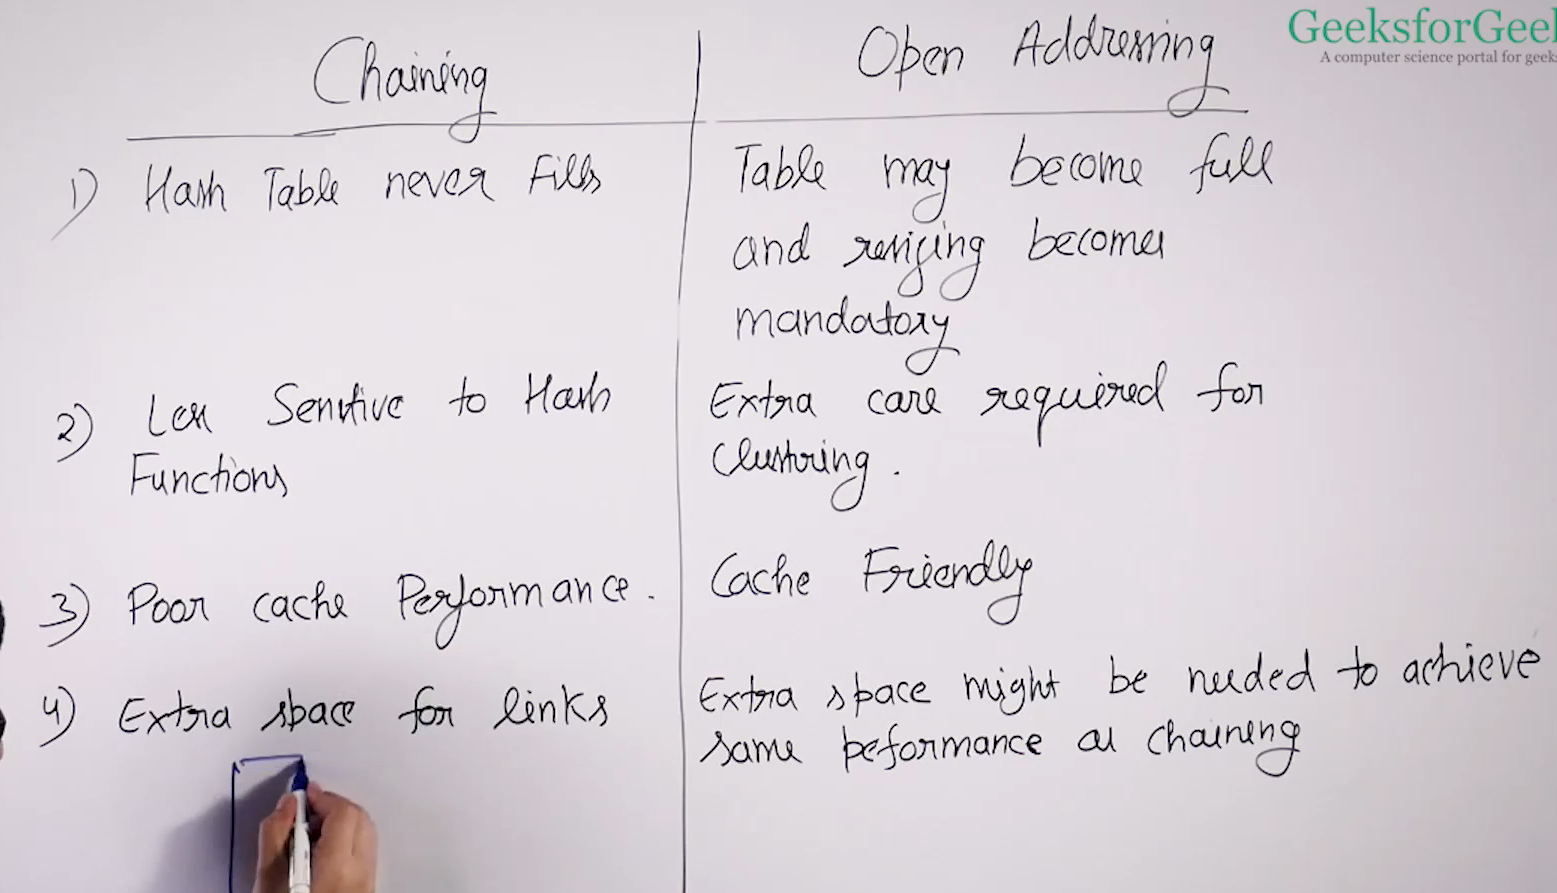 GeeksforGeek
A computer science portal for geeks
Chaining
Open Addressing
1) Hash Table never Fills
Table may become full
and resizing becomes
mandatory
2) Less Sensitive to Hash
Functions
Extra care required for
Clustering.
3) Poor cache Performance.
Cache Friendly
4) Extra space for links
Extra space might be needed to achieve
same peformance as chaining